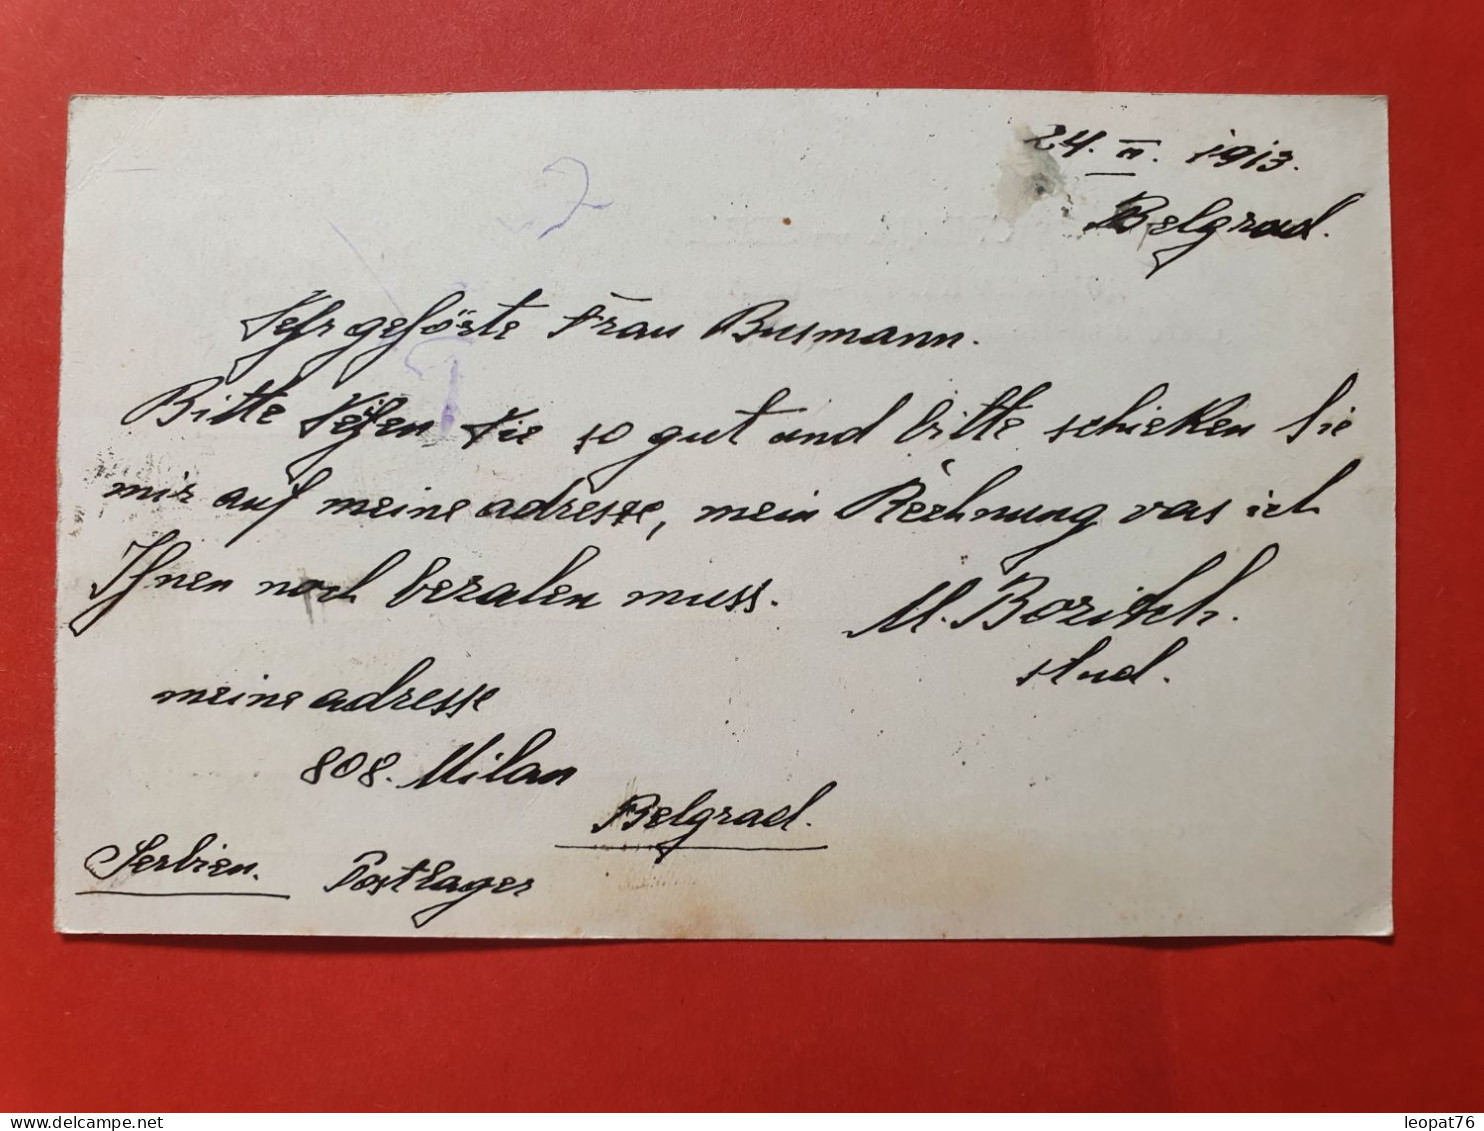 24. II. 1913.
Belgrad.
Sehr gehörte Frau Busmann.
Bitte Sehen Sie so gut und bitte schicken Sie
mir auf meine adresse, mein Rechnung vas ich
Ihnen noch bezalen muss.
M. Bozitch.
stud.
meine adresse
808. Milan
Belgrad.
Serbien. Postlager
leopat76